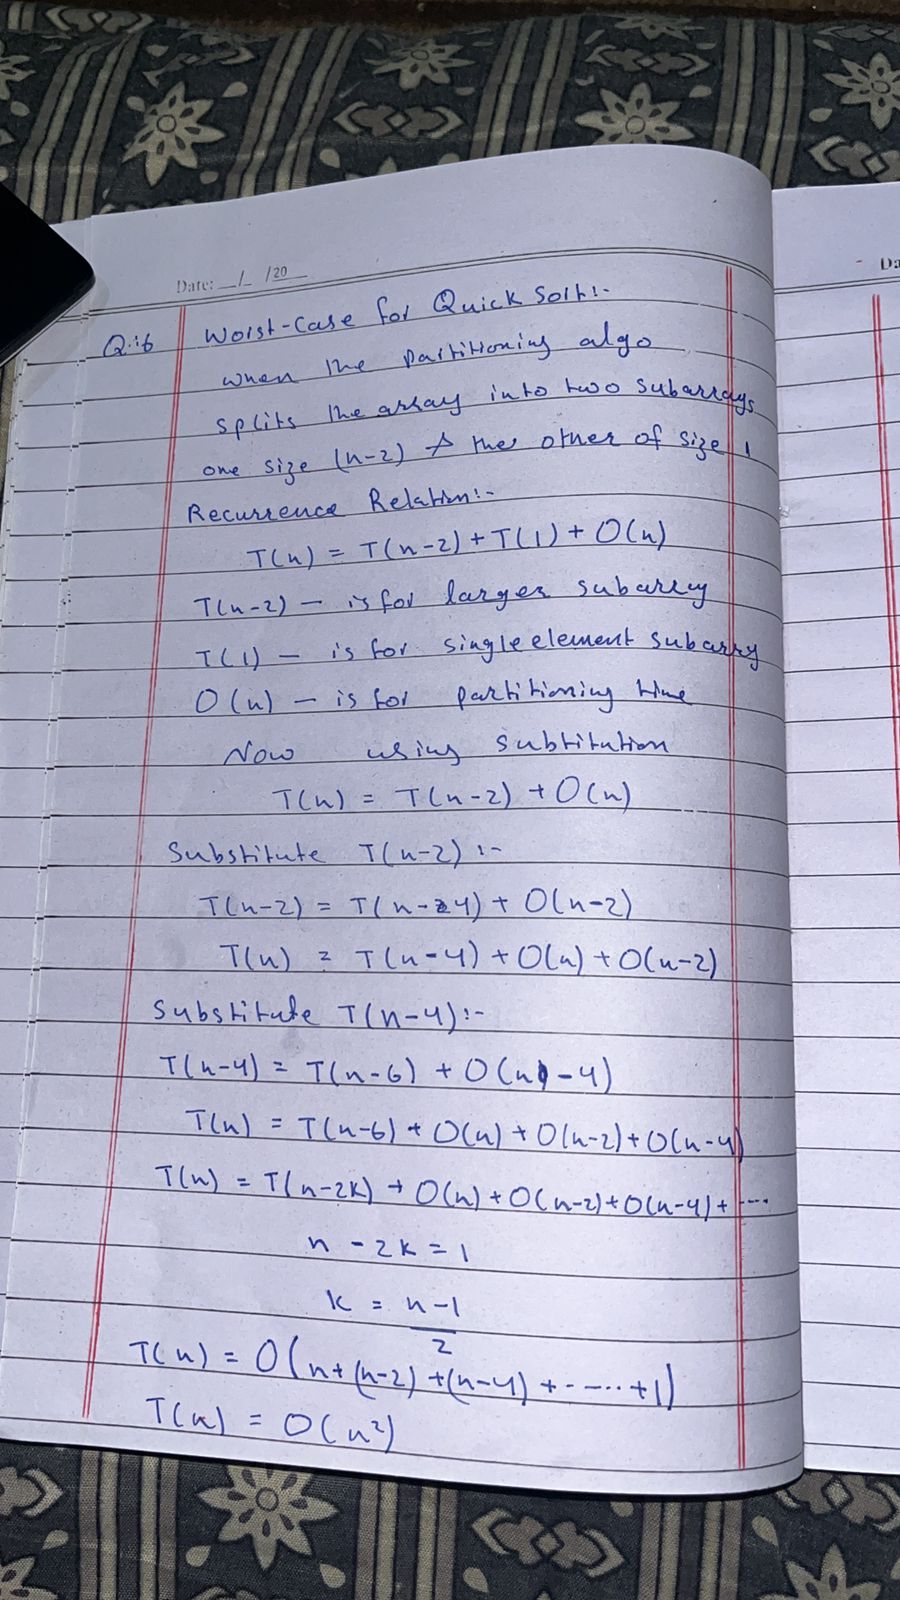 Date: __/__/20__
Da
Q:16 Worst-Case for Quick Sort:-
when the partitioning algo
splits the array into two subarrays
one size (n-2) & the other of size 1
Recurrence Relation:-
T(n) = T(n-2) + T(1) + O(n)
T(n-2) - is for larger subarry
T(1) - is for single element subarry
O(n) - is for partitioning time
Now using subtitution
T(n) = T(n-2) + O(n)
Substitute T(n-2) :-
T(n-2) = T(n-4) + O(n-2)
T(n) = T(n-4) + O(n) + O(n-2)
Substitute T(n-4):-
T(n-4) = T(n-6) + O(n-4)
T(n) = T(n-6) + O(n) + O(n-2) + O(n-4)
T(n) = T(n-2k) + O(n) + O(n-2) + O(n-4) + ....
n - 2k = 1
k = n-1
2
T(n) = O(n+(n-2)+(n-4)+......+1)
T(n) = O(n²)